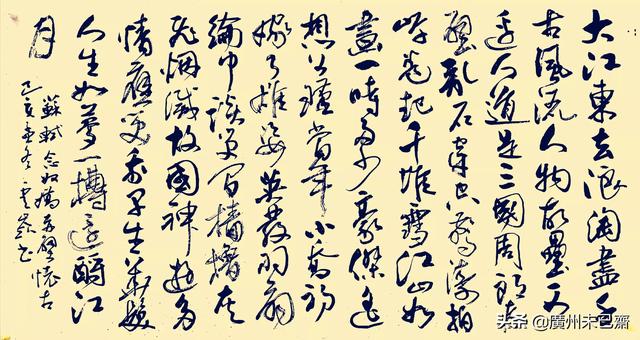 大江東去浪淘盡千
古風流人物故壘西
邊人道是三國周郎赤
壁亂石穿空驚濤拍
岸卷起千堆雪江山如
畫一時多少豪傑遙
想公瑾當年小喬初
嫁了雄姿英發羽扇
綸巾談笑間檣櫓灰
飛烟滅故國神遊多
情應笑我早生華髮
人生如夢一樽還酹江
月
蘇軾念奴嬌赤壁懷古
己亥 冬 書
头条 @廣州未巴齋